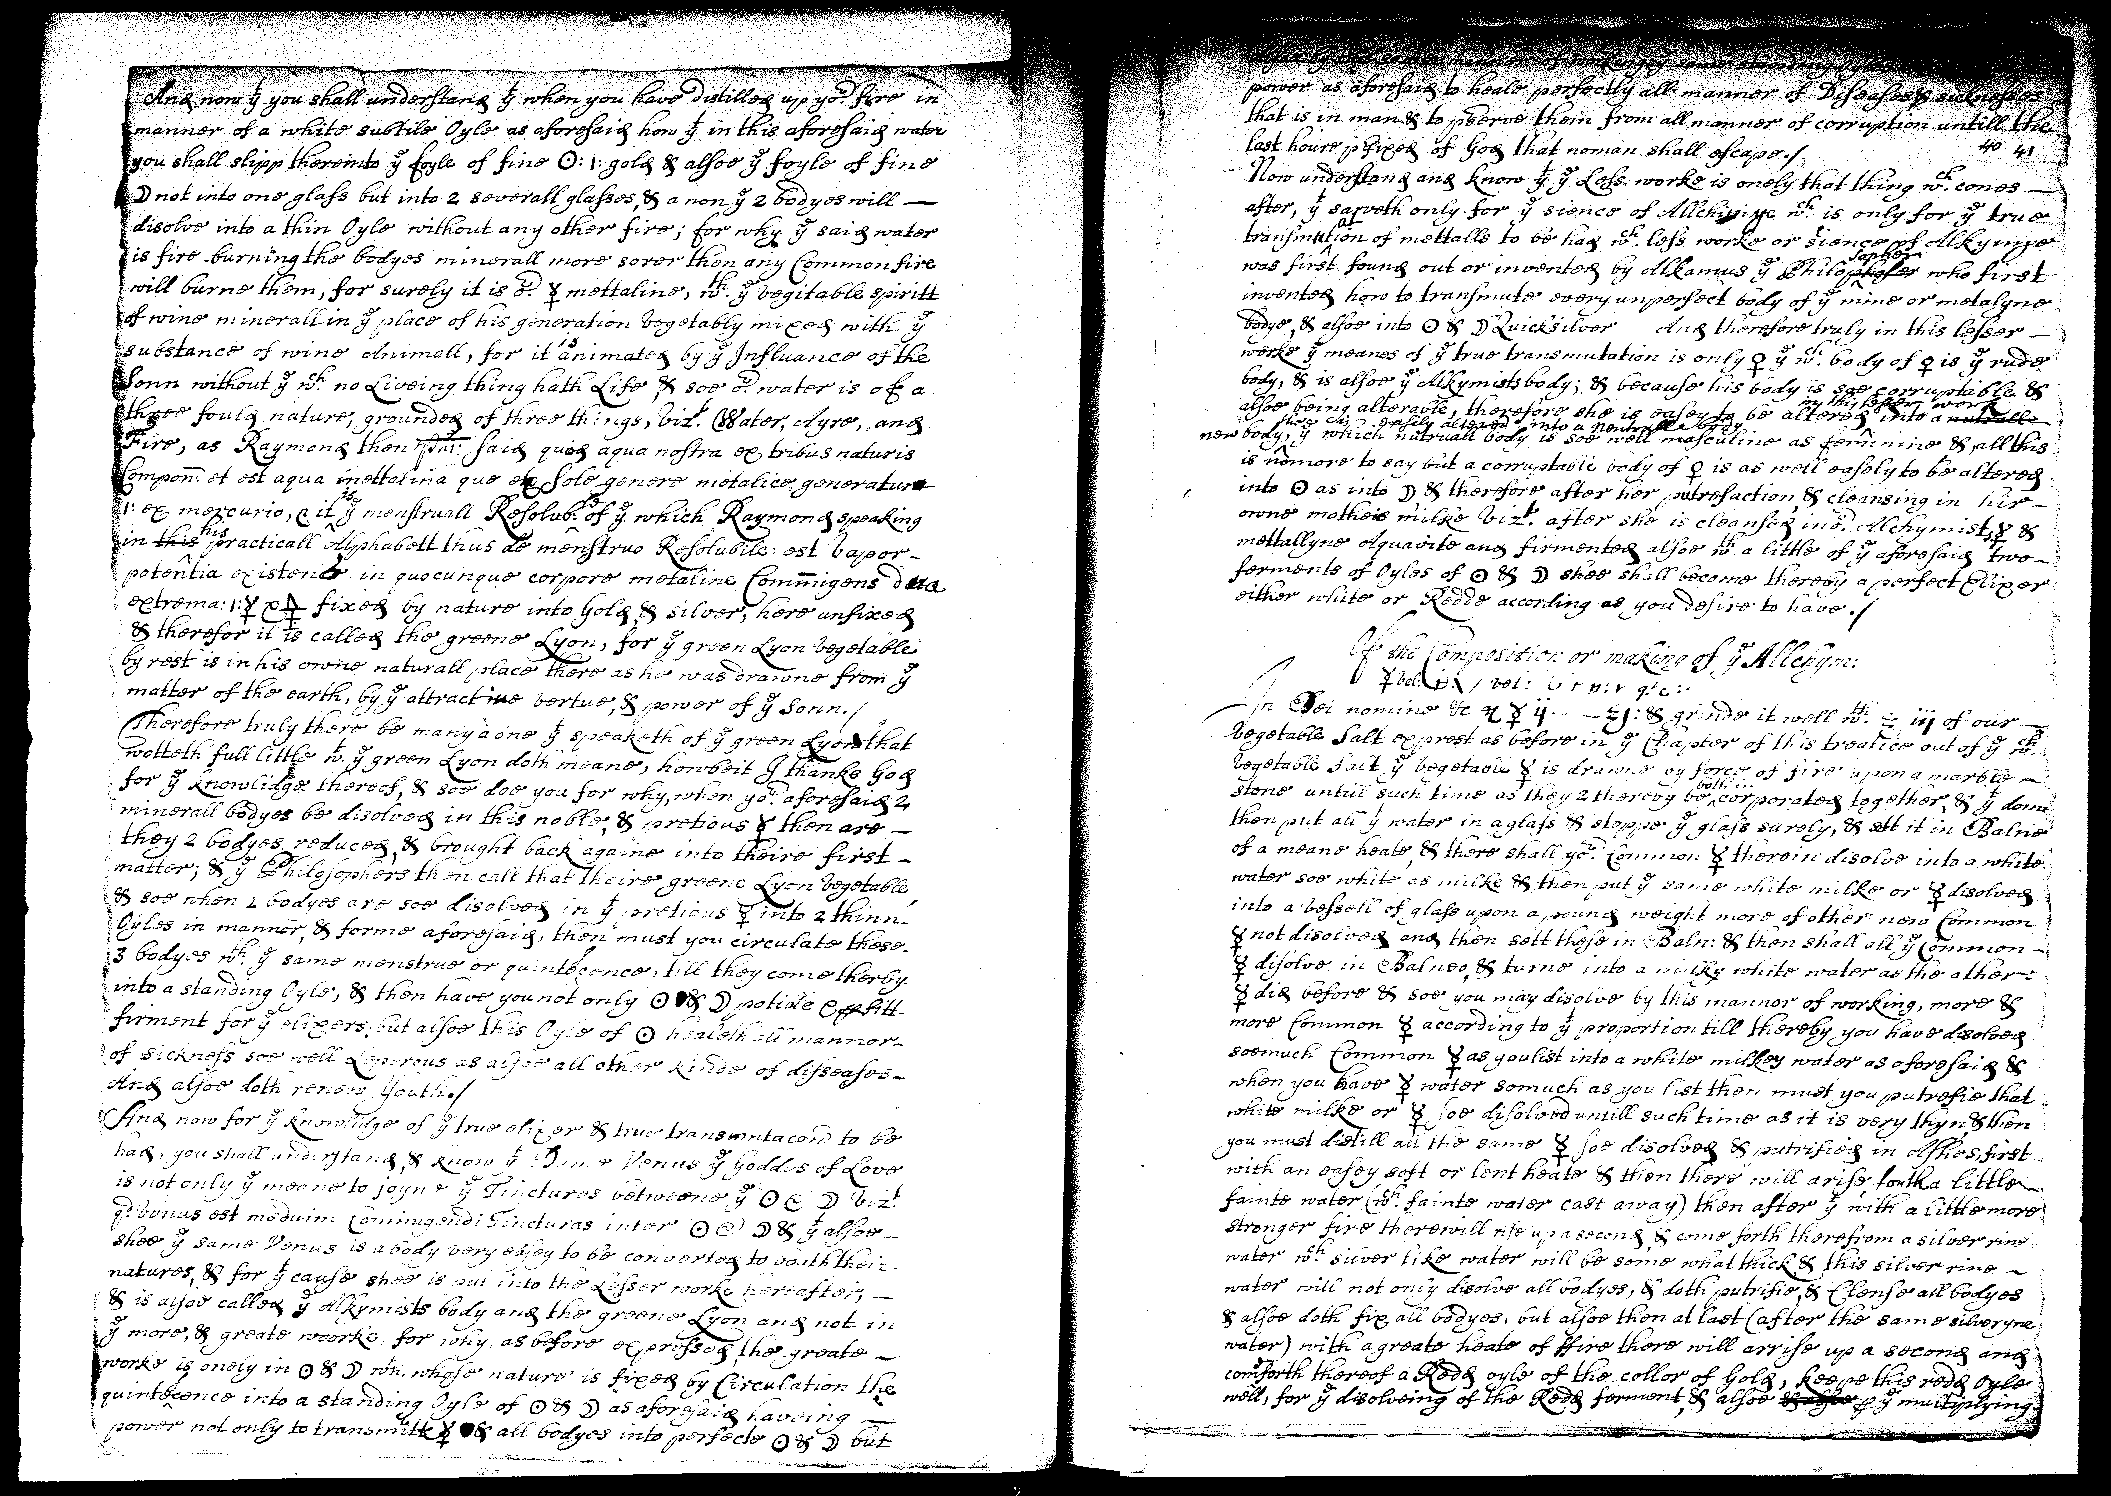 And now yt you shall understand yt when you have distilled up yor fire in
manner of a white subtile Oyle as aforesaid how yt in this aforesaid water
you shall slipp thereinto ye foyle of fine ☉: i: gold & alsoe ye foyle of fine
☽ not into one glass but into 2 severall glasses, & a non ye 2 bodyes will —
disolve into a thin Oyle without any other fire; for why ye said water
is fire burning the bodyes minerall more sorer then any Common fire
will burne them, for surely it is or ☿ mettaline, wch ye vegitable spiritt
of wine minerall in ye place of his generation vegetably mixed with ye
substance of wine Animell, for it is animated by ye Influance of the
Sonn without ye wch no Liveing thing hath Life, & soe or water is of a
three fould nature, grounded of three things, vizt Water, Ayre, and
Fire, as Raymond then said quod aqua nostra ex tribus naturis
Componr et est aqua mettalina que ex Sole genere metalico generatur
i: ex mercurio, & it is ye menstruall Resolub: of ye which Raymond speaking
in this his practicall Alphabett thus de menstruo Resolubile: est vapor —
potentia existenc in quocunque corpore metaline Commigens dua
extrema: i: ☿ & 🜍 fixed by nature into Gold, & silver, here unfixed
& therefor it is called the greene Lyon, for ye green Lyon vegetable
by rest is in his owne naturall place there as he was drawne from ye
matter of the earth, by ye attractive vertue, & power of ye Sonn./
Therefore truly there be many a one yt speaketh of ye green Lyon that
wotteth full little wt ye green Lyon doth meane, howbeit I thanke God
for ye knowlidge thereof, & soe doe you for why, when yor aforesaid 2
minerall bodyes be disolved in this noble, & pretious ☿ then are —
they 2 bodyes reduced, & brought back againe into theire first —
matter; & ye Philosophers then call that theire greene Lyon vegetable,
& soe when 2 bodyes are soe disolved in yt pretious ☿ into 2 thinn
Oyles in manner, & forme aforesaid, then must you circulate these
3 bodyes wth ye same menstrue or quintecence, till they come therby
into a standing Oyle, & then have you not only ☉ & ☽ potible & fitt
firment for ye elixers, but alsoe this Oyle of ☉ healeth all mannor —
of sickness soe well Leperous as alsoe all other kinde of disseases —
And alsoe doth renew Youth./
And now for ye knowlidge of ye true elixer & true transmutacon to be
had, you shall understand, & know yt Dame Venus ye Goddis of Love
is not only ye meane to joyne ye Tinctures betweene ye ☉ & ☽ vizt
qd venus est medium Comiugendi Tincturas inter ☉ & ☽ & yt alsoe —
shee ye same Venus is a body very easey to be converted to boith their
natures, & for yt cause shee is put into the Lesser worke hereafter, —
& is alsoe called ye Alkymists body and the greene Lyon and not in
ye more, & greate worke, for why, as before expressed, the greate —
worke is onely in ☉ & ☽ wch, whose nature is fixed by Circulation the
quintecence into a standing Oyle of ☉ & ☽ as aforesaid haveing —
power not only to transmute ☿ & all bodyes into perfecte ☉ & ☽ but
power as aforesaid to heale perfectly all manner of Diseases & sicknesses
that is in man & to pserve them from all manner of corruption untill the
last houre pfixed of God that noman shall escape./
40 41
Now understand and know yt ye Less worke is onely that thing wch comes —
after, yt sarveth only for ye sience of Allchimye wch is only for ye true
transmution of mettalls to be had wch less worke or sience of Alkymye
was first found out or invented by Alkamus ye Philosopher who first
invented how to transmute every unperfect body of ye mine or metalyne
bodye, & alsoe into ☉ & ☽ Quicksilver And therefore truly in this lesser —
worke ye meanes of ye true transmutation is only ♀ ye wch body of ♀ is ye rude
body, & is alsoe ye Alkymists body; & because his body is soe corruptable &
alsoe being alterable, therefore she is easey to be altered in this lesser work into a natrall
shee is easely altered into a neutrall body
new body, ye which natruall body is soe well masculine as feminine & all this
is nomore to say but a corruptable body of ♀ is as well easely to be altered
into ☉ as into ☽ & therefore after her putrefaction, & cleansing in hir —
owne mothers milke vizt after she is clensed in or Alchymist ☿ &
mettallyne Aquavite and firmented alsoe wth a little of ye aforesaid two —
ferments of Oyles of ☉ & ☽ shee shall become thereby a perfect Elixer
either white or Redde according as you desire to have./
Of the Composition or making of ye Allchyon:
In Dei nomine &c ℞ ☿ & grinde it well wth of our —
Vegetable Salt exprest as before in ye Chapter of this treatice out of ye wch
vegetable salt ye vegetable ☿ is drawne by force of fire upon a marble —
stone untill such time as they 2 thereby be both corporated together, & yt done
then put all ye water in a glass & stoppe ye glass surely, & sett it in Balne
of a meane heate, & there shall yor Common ☿ therein disolve into a white
water soe white as milke & then put ye same white milke or ☿ disolved
into a vessell of glass upon a pound weight more of other new Common
☿ not disolved and then sett these in Baln: & then shall all ye Common —
☿ disolve in Balneo, & turne into a milky white water as the ather:
☿ did before & soe you may disolve by this mannor of working, more &
more Common ☿ according to yt proportion till thereby you have disolved
soemuch Common ☿ as you list into a white milkey water as aforesaid &
when you have ☿ water somuch as you list then must you putrefie that
white milke or ☿ soe disolved untill such time as it is very thyn, & then
you must distill all the same ☿ soe disolved & putrified in Ashes, first
with an easey soft or lent heate & then there will arise foutha little
fainte water (wch fainte water cast away) then after yt with a little more
stronger fire therewill rise up a second, & come forth therefrom a silver rine
water wch silver like water will be some what thick & this silver rine —
water will not only disolve all bodyes, & doth putrifie, & Clense all bodyes
& alsoe doth fix all bodyes, but alsoe then at last (after the same silveryne
water) with a greate heate of ffire there will arrise up a second and
comforth thereof a Redd oyle of the collor of Gold, keepe this redd Oyle
well, for ye disolveing of the Redd ferment, & alsoe p ye multiplying